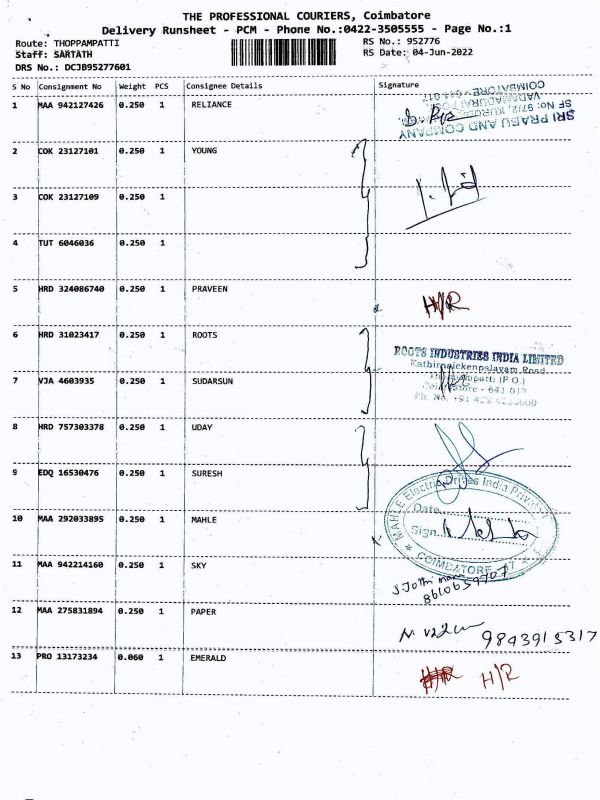 THE PROFESSIONAL COURIERS, Coimbatore
Delivery Runsheet - PCM - Phone No.:0422-3505555 - Page No.:1
Route: THOPPAMPATTI RS No.: 952776
Staff: SARTATH RS Date: 04-Jun-2022
DRS No.: DCJB95277601
S No Consignment No Weight PCS Consignee Details Signature
1 MAA 942127426 0.250 1 RELIANCE
SRI PRABU AND COMPANY
COIMBATORE - 641 017
2 COK 23127101 0.250 1 YOUNG
3 COK 23127109 0.250 1
4 TUT 6046036 0.250 1
5 HRD 324086740 0.250 1 PRAVEEN H/R
6 HRD 31023417 0.250 1 ROOTS
ROOTS INDUSTRIES INDIA LIMITED
Kathirnaickenpalayam Road
(P.O.)
Coimbatore - 641 017
7 VJA 4603935 0.250 1 SUDARSUN
8 HRD 757303378 0.250 1 UDAY
9 EDQ 16530476 0.250 1 SURESH
MAHLE Electric Drives India Private
Date
Sign
COIMBATORE
10 MAA 292033895 0.250 1 MAHLE
11 MAA 942214160 0.250 1 SKY
12 MAA 275831894 0.250 1 PAPER
9843915317
13 PRO 13173234 0.060 1 EMERALD H/R